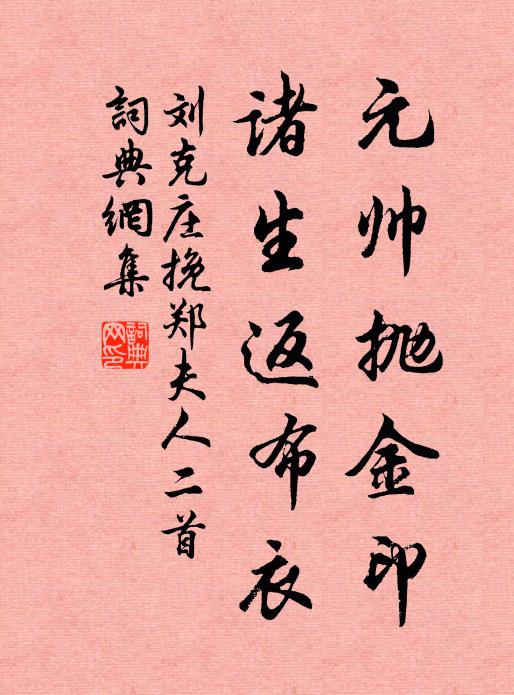 元帅抛金印
诸生返布衣
刘克庄挽郑夫人二首
詞典網集
詞典网印